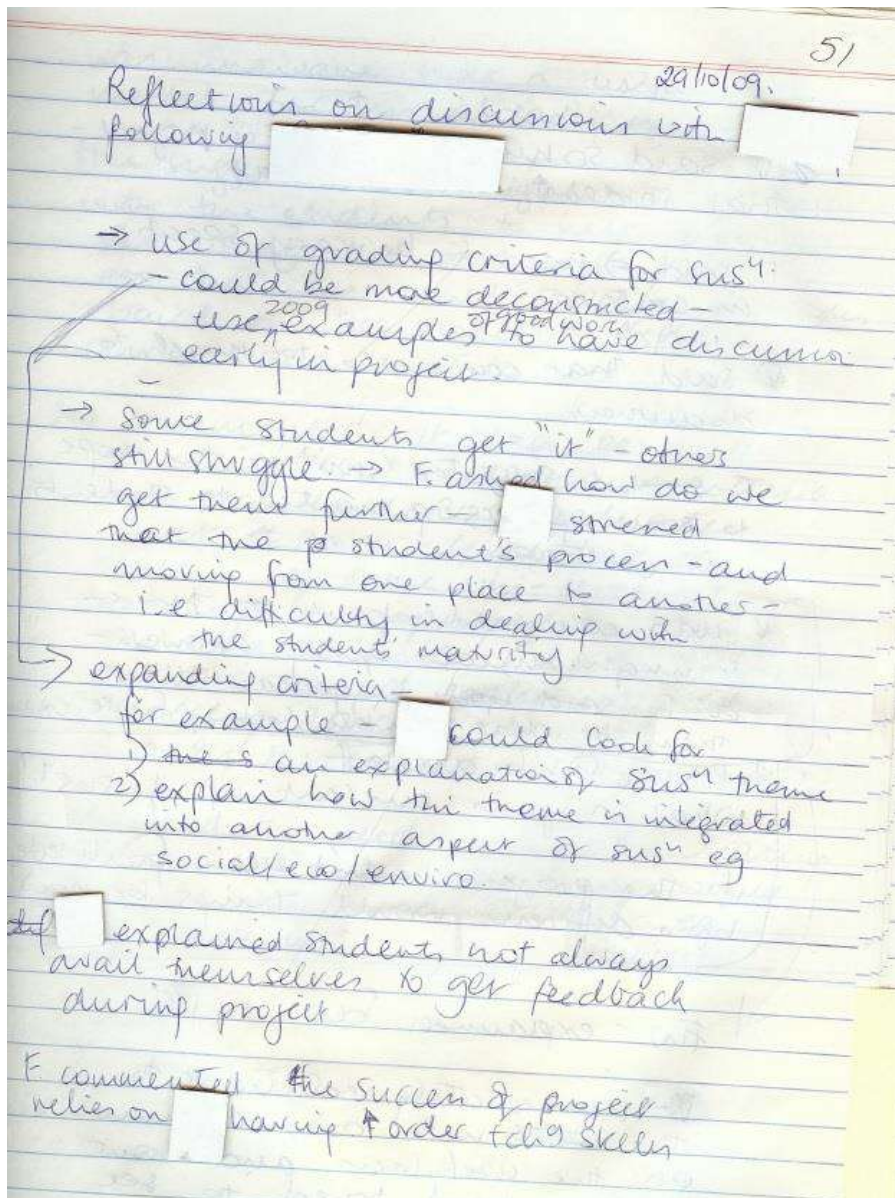 51
29/10/09.
Reflections on discussions with
following
→ use of grading criteria for susy.
- could be more deconstructed -
use 2009 examples of good work to have discussion
early in project.
→ Some students get "it" - others
still struggle. → F. asked how do we
get them further - stressed
that the p student's process - and
moving from one place to another -
i.e difficulty in dealing with
the students' maturity
→ expanding criteria -
for example - could look for
1) the s an explanation of susy theme
2) explain how this theme is integrated
into another aspect of susy eg
social/eco/enviro.
explained students not always
avail themselves to get feedback
during project
F. commented the success of project
relies on having ↑ order tchg skills